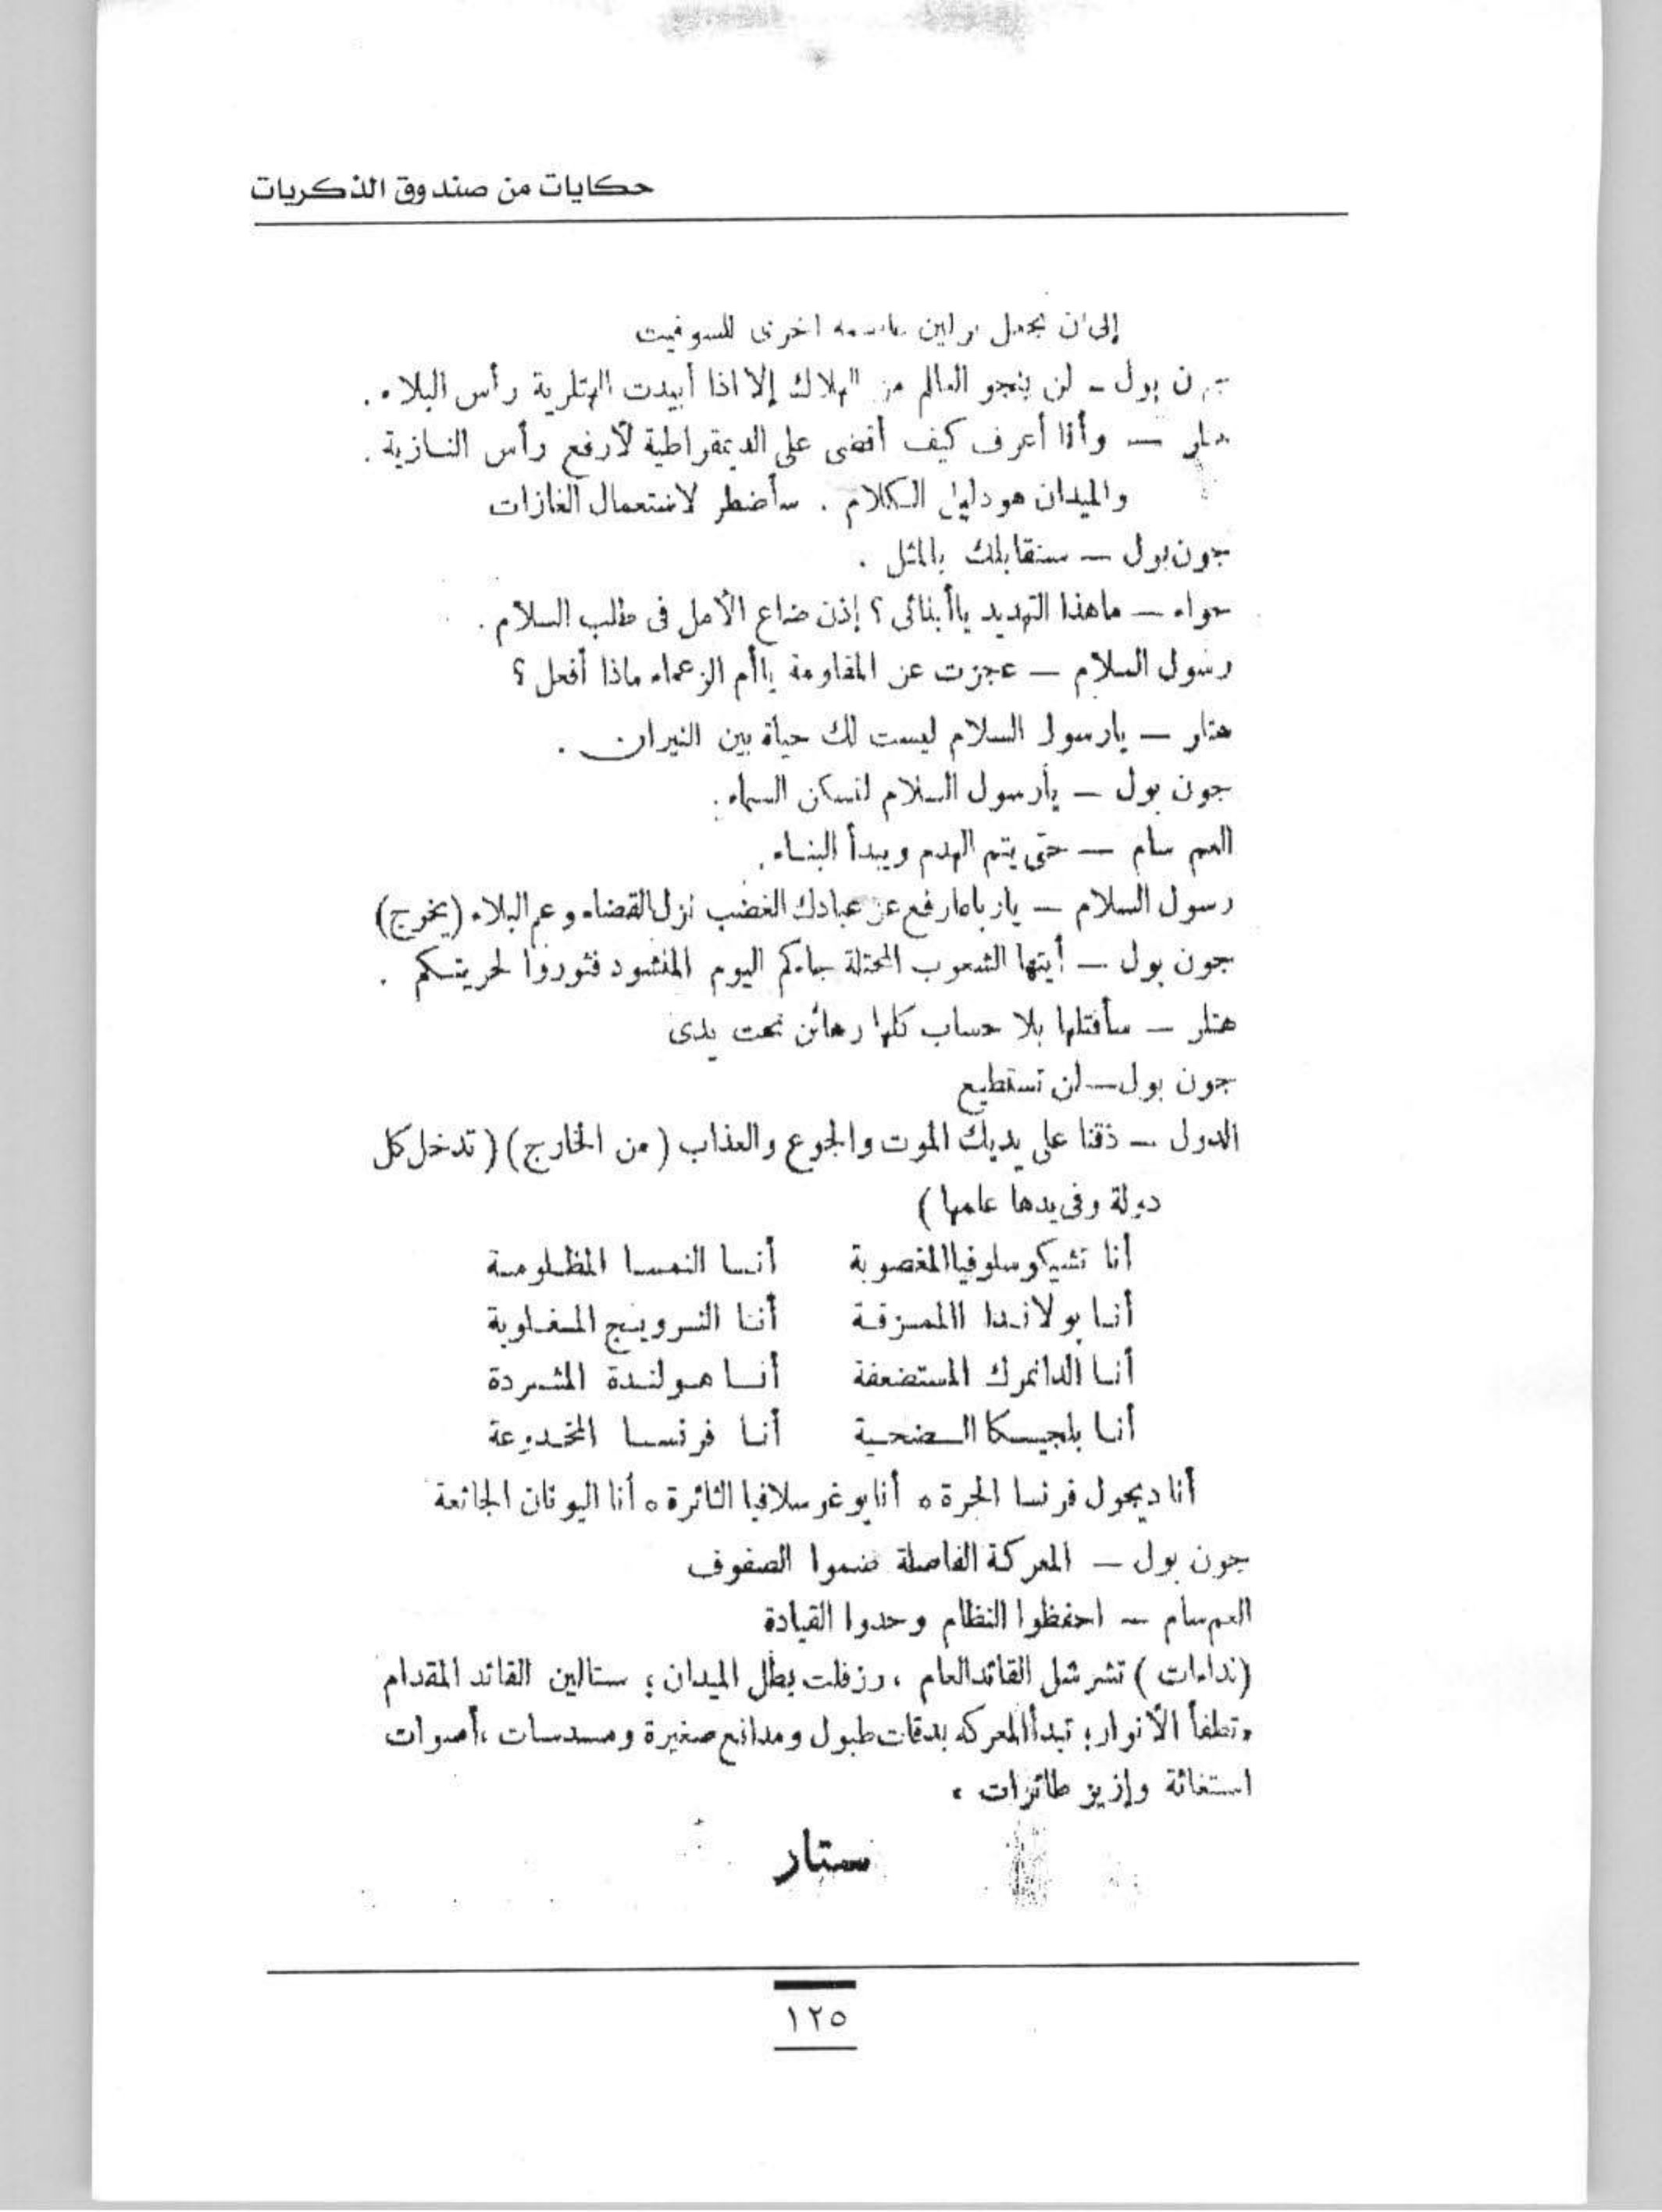 حكايات من صندوق الذكريات
إلى أن نجعل برلين عاصمه اخرى للسوفيت
جون بول ــ لن ينجو العالم من الهلاك إلا اذا أبيدت الهتلرية رأس البلاء .
هتلر ــ وأنا أعرف كيف أقضى على الديمقراطية لأرفع رأس النازية .
والميدان هو دليل الكلام . سأضطر لاستعمال الغازات
جون بول ــ سنقابلك بالمثل .
حواء ــ ماهذا التهديد ياأبنائى ؟ إذن ضاع الأمل فى طلب السلام .
رسول السلام ــ عجزت عن المقاومة ياأم الزعماء ماذا أفعل ؟
هتلر ــ يارسول السلام ليست لك حياة بين النيران .
جون بول ــ يارسول السلام لتسكن السماء .
العم سام ــ حتى يتم الهدم ويبدأ البناء .
رسول السلام ــ يارباه ارفع عن عبادك الغضب نزل القضاء وعم البلاء (يخرج)
جون بول ــ أيتها الشعوب المحتلة جاءكم اليوم المنشود فثوروا لحريتكم .
هتلر ــ سأقتلها بلا حساب كلها رهائن تحت يدى
جون بول ــ لن تستطيع
الدول ــ ذقنا على يديك الموت والجوع والعذاب ( من الخارج ) ( تدخل كل
دولة وفى يدها علمها )
أنا تشيكوسلوفيا المغصوبة أنا النمسا المظلومة
أنا بولاندا الممزقة أنا النرويج المغلوبة
أنا الدانمرك المستضعفة أنا هولندة المشردة
أنا بلجيكا الضحية أنا فرنسا المخدوعة
أنا ديجول فرنسا الحرة ه أنا يوغوسلافيا الثائرة ه أنا اليونان الجائعة
جون بول ــ المعركة الفاصلة ضموا الصفوف
العم سام ــ احفظوا النظام وحدوا القيادة
(نداءات ) تشرشل القائد العام ، رزفلت بطل الميدان ؛ ستالين القائد المقدام
وتطفأ الأنوار ؛ تبدأ المعركه بدقات طبول ومدافع صغيرة ومسدسات ،أصوات
استغاثة وإزيز طائرات ،
ستار
١٢٥